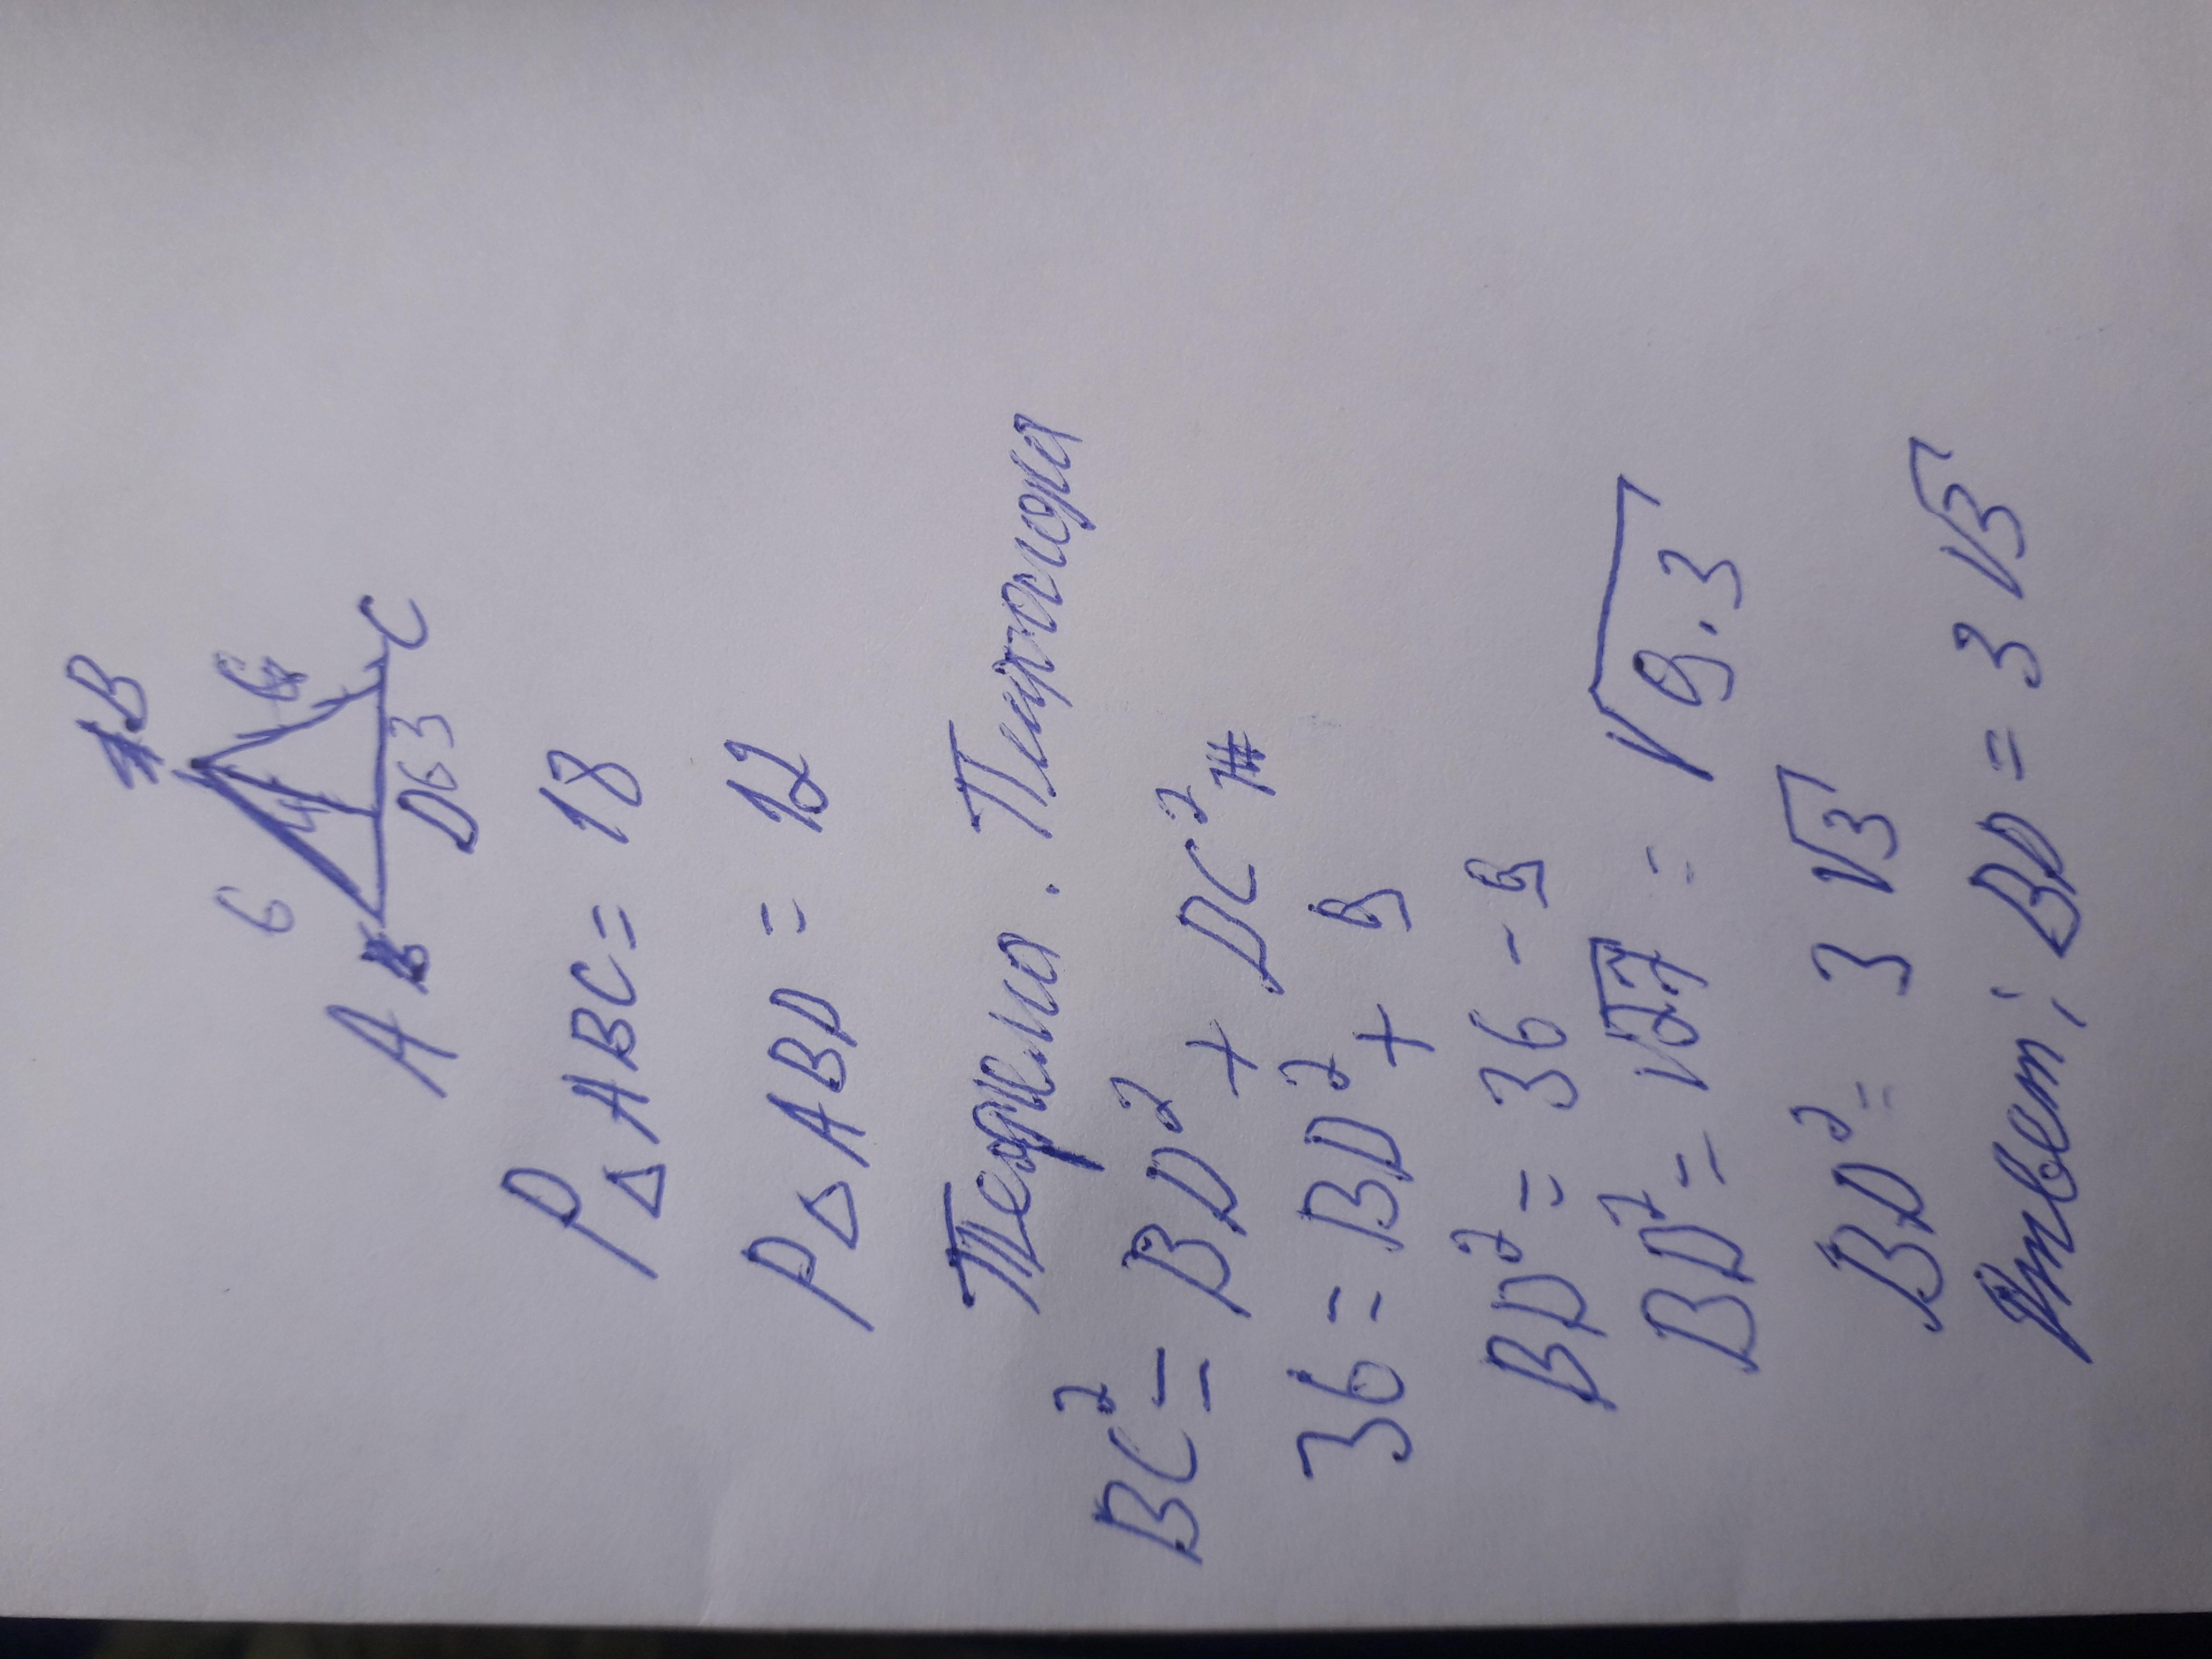 B
6 6
4
A C
D 6 3
P△ABC = 18
P△ABD = 12
Теорема. Пифагора
BC² = BD² + DC²
36 = BD² + 9
BD² = 36 - 9
BD² = √27 = √9.3
BD² = 3√3
Ответ; BD = 3√3